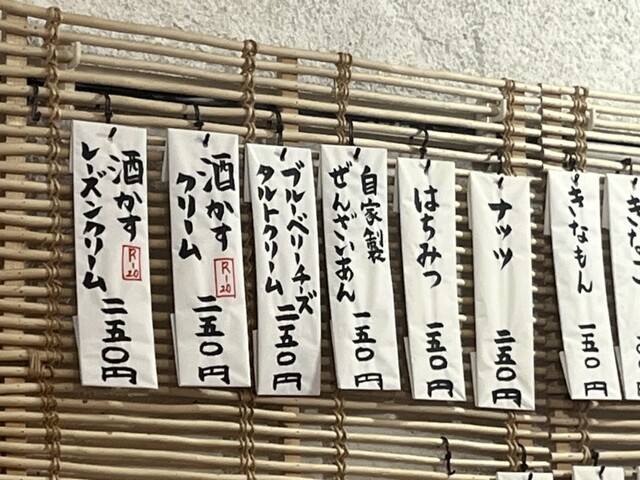 きなもん
一五〇円
ナッツ
二五〇円
はちみつ
一五〇円
自家製
ぜんざいあん
一五〇円
ブルーベリーチーズ
タルトクリーム
二五〇円
酒かす
R-20
クリーム
二五〇円
酒かす
R-20
レーズンクリーム
二五〇円